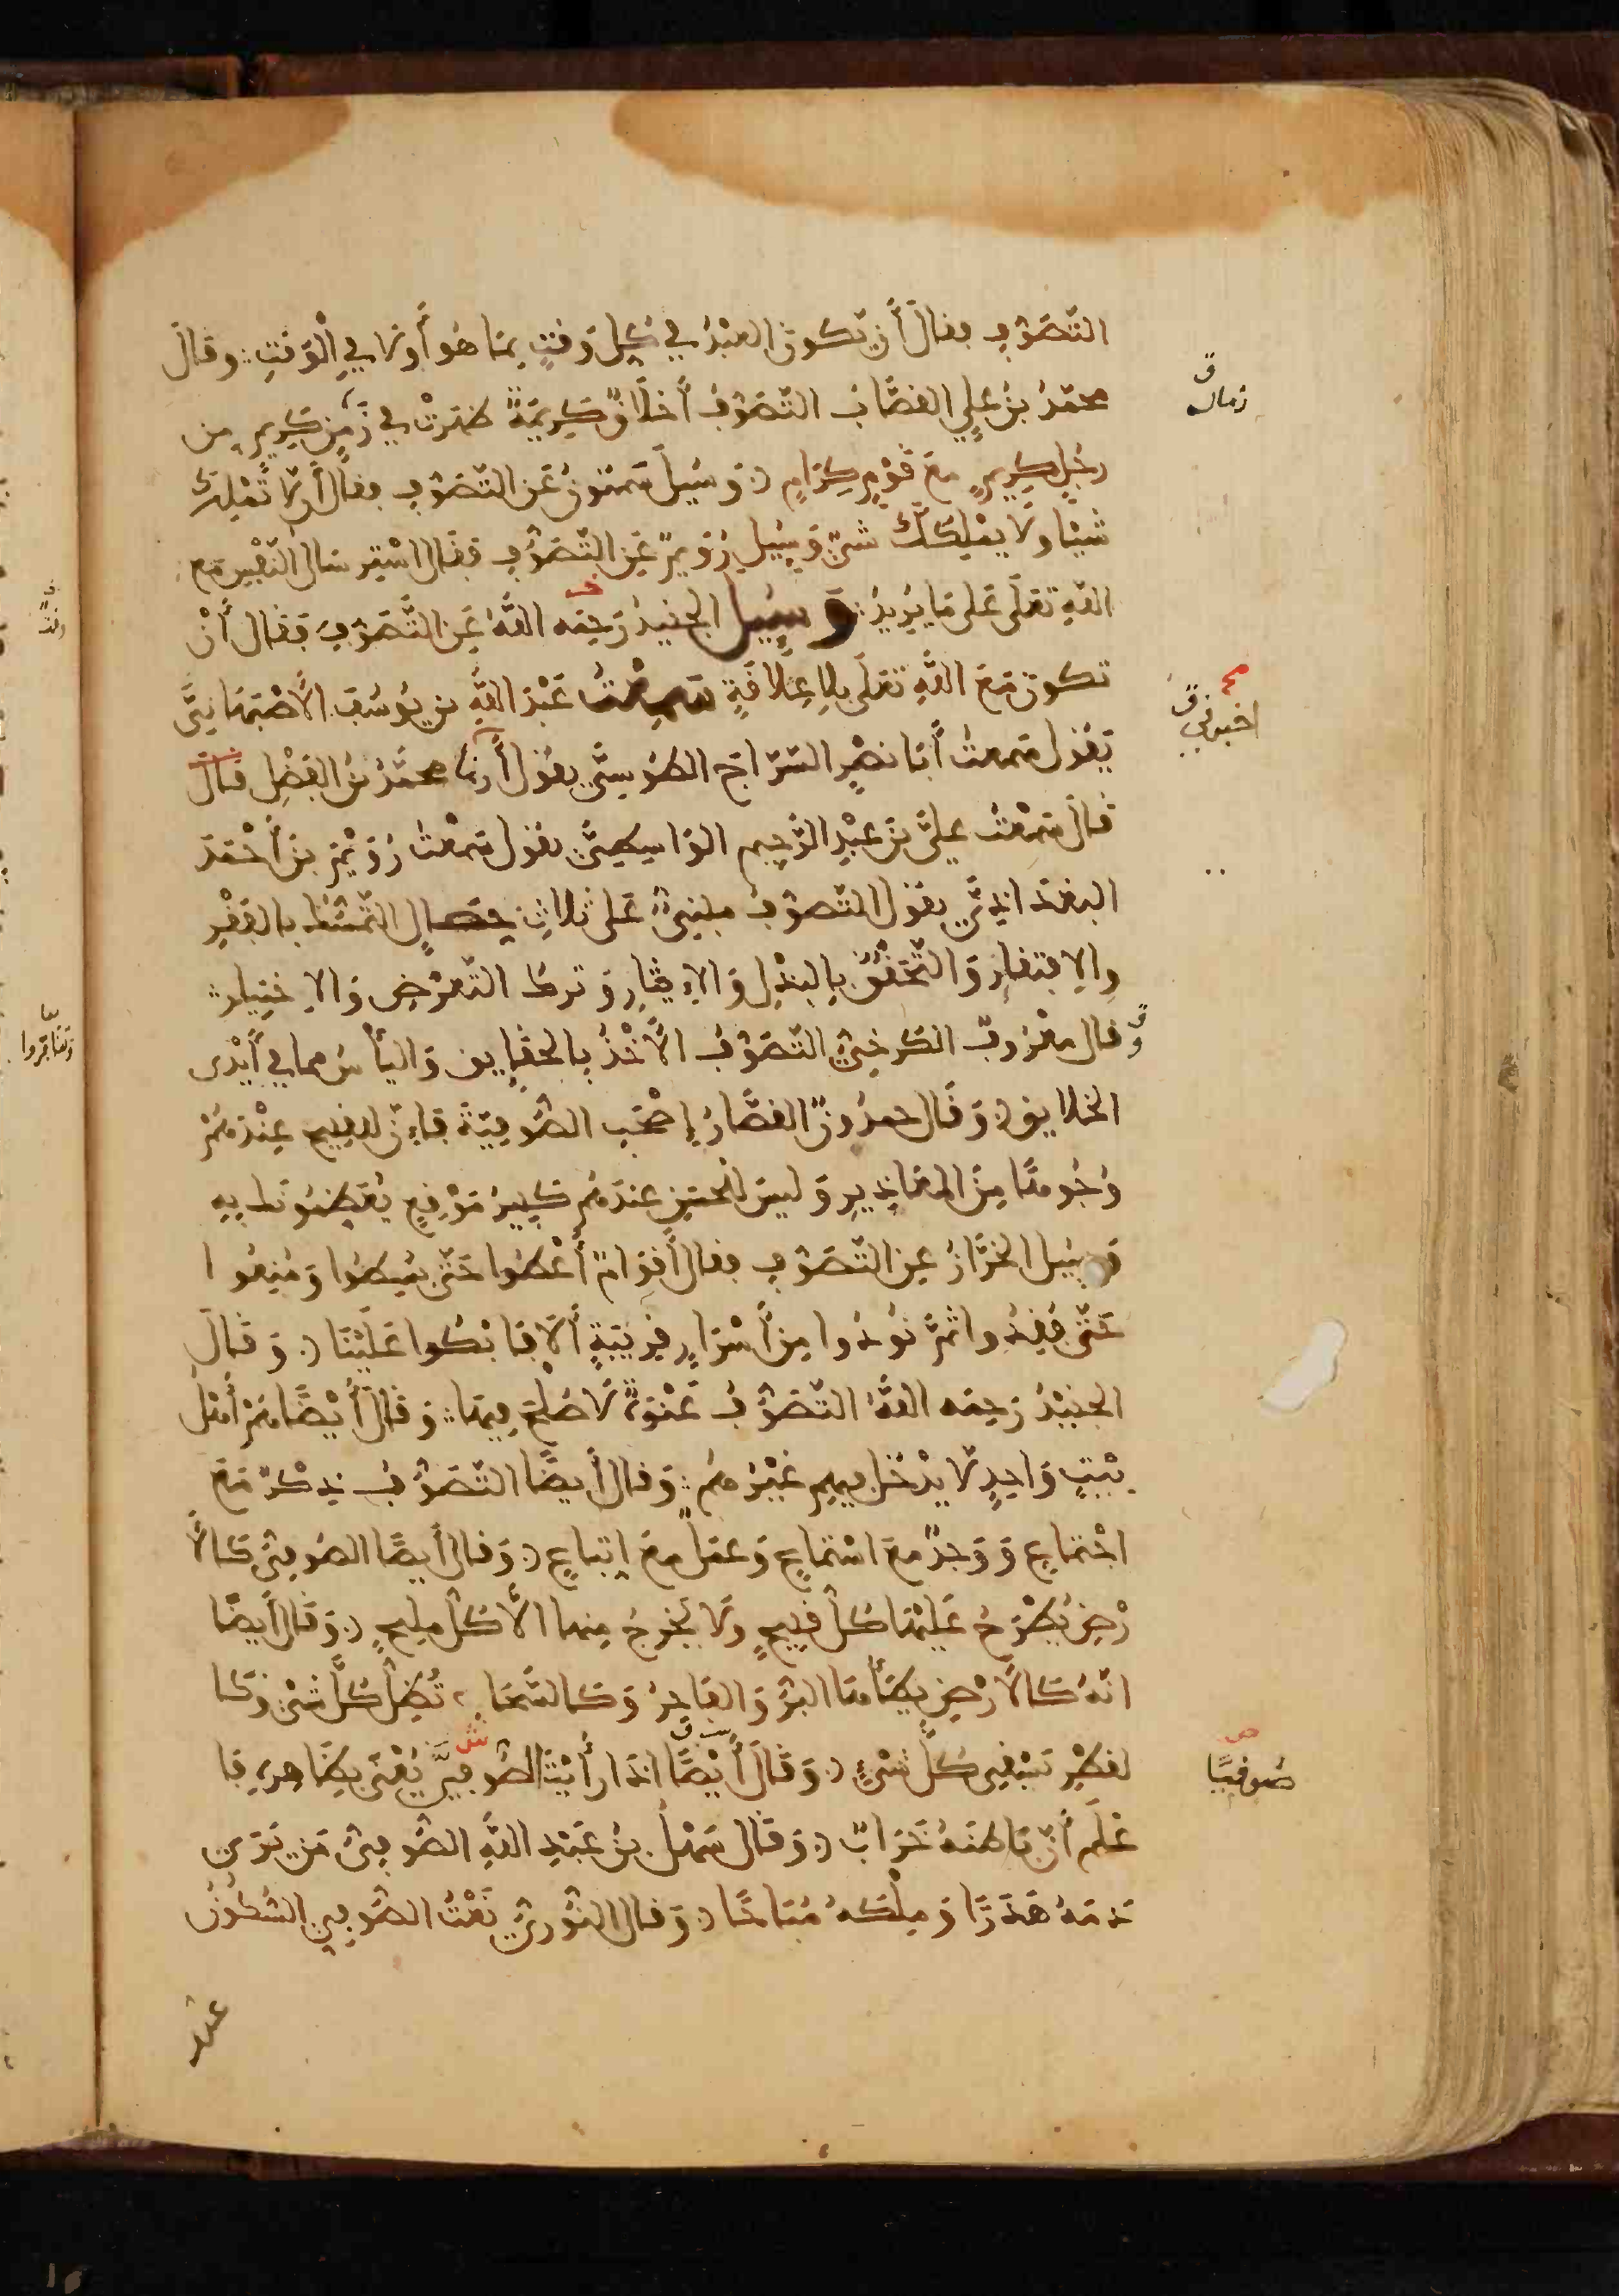 التَّصَوُّفِ فقالَ أَن يَكُونَ العَبْدُ في كُلِّ وَقْتٍ بِمَا هُوَ أَوْلَى فِي الْوَقْتِ وقالَ
محمّدُ بنُ عَلِيٍّ القصَّابُ التَّصَوُّفُ أَخْلَاقٌ كَرِيمَةٌ ظهَرَتْ في زَمَنٍ كَرِيمٍ مِن
رجُلٍ كرِيمٍ مَعَ قَوْمٍ كِرَامٍ وَسُئِلَ سَمنُونٌ عَنِ التَّصَوُّفِ فقالَ أَن لَا تَمْلِكَ
شَيْئًا وَلَا يَمْلِكَكَ شَيْءٌ وَسُئِلَ رُوَيْمٌ عَنِ التَّصَوُّفِ فَقَالَ اسْتِرْسَالُ النَّفْسِ مَعَ
اللّهِ تَعَلَى عَلَى مَا يُرِيدُ وَسُئِلَ الجُنَيْدُ رَحِمَه اللَّهُ عَنِ التَّصَوُّفِ فَقَالَ أَنْ
تكونَ مَعَ اللَّهِ تَعَلَى بِلَا عِلَاقَةٍ سَمِعْتُ عَبْدَ اللَّهِ بنَ يُوسُفَ الأَصْبَهَانِيَّ
يَقُولُ سَمعتُ أَبَا نَصْرٍ السَّرَّاجَ الطُوسِيَّ يقُولُ أنا محمَّدُ بْنُ الفَضْلِ قَالَ
قالَ سَمِعْتُ عَلِيَّ بنَ عَبْدِ الرَّحِيمِ الوَاسِطِيَّ يقُولُ سَمِعْتُ رُوَيْمَ بنَ أَحْمَدَ
البغدَادِيَّ يقُولُ التَّصَوُّفُ مبْنِيٌّ عَلَى ثَلَاثِ خِصَالٍ التَّمَسُّكُ بالفَقْرِ
وَالِافْتِقَارِ وَالتَّحَقُّقُ بِالبَذْلِ وَالإِيثَارِ وَتركُ التَّعَرُّضِ وَالِاخْتِيَارِ
وقَالَ مَعْرُوفٌ الكَرْخِيُّ التَّصَوُّفُ الأَخْذُ بِالحَقَايِقِ وَاليَأْسُ مما في أَيْدِى
الخلَايِقِ وَقَالَ حمدُونٌ القصَّارُ اِصْحَبِ الصُّوفِيَّةَ فَإِنَّ لِلقَبِيحِ عِنْدَهُمْ
وُجُوهًا مِنَ المعَاذِيرِ وَليسَ لِلْحَسَنِ عندَهُم كَبِيرُ مَوْقِعٍ يُعَظِّمُونَكَ بِهِ
وَسُئِلَ الخرَّازُ عَنِ التَّصَوُّفِ فقالَ أَقوَامٌ أُعْطُوا حَتَّى بُسِطُوا وَمُنِعُوا
حَتَّى فُقِدُوا ثُمَّ نُودُوا مِنْ أَسْرَارٍ قَرِيبَةٍ أَلَا فَابْكُوا عَلَيْنَا وَقَالَ
الجنَيْدُ رَحِمَه اللَّهُ التَّصَوُّفُ عَنْوَةٌ لَا صُلْحَ فِيهَا وَقَالَ أَيْضًا هُمْ أَهْلُ
بَيْتٍ وَاحِدٍ لَا يَدْخُلُ فِيهِم غَيْرُهُم وَقَالَ أَيضًا التَّصَوُّفُ ذِكْرٌ مَعَ
اجْتِمَاعٍ وَوَجْدٌ مَعَ اسْتِمَاعٍ وَعَمَلٌ مَعَ اتِبَاعٍ وَقَالَ أَيضًا الصُوفِيُّ كَالأَ
رْضِ يُطْرَحُ عَلَيْهَا كُلُّ قَبِيحٍ وَلَا يَخْرُجُ مِنهَا إلَّا كُلُّ مَلِيحٍ وَقَالَ أَيضًا
انَّهُ كَالأَرْضِ يَطَأُهَا البَرُّ وَالفَاجِرُ وَكَالسَّحَابِ تُظِلُّ كُلَّ شَيْءٍ وَكَا
لقَطْرِ تَسْقِى كُلَّ شَيْءٍ وَقَالَ أَيْضًا إذَا رَأَيْتَ الصُوفِيَّ يُعْنَى بِظَاهِرِهِ فَا
عْلَم أَنَّ بَاطِنَهُ خَرَابٌ وَقَالَ سَهْلُ بنُ عَبْدِ اللَّهِ الصُّوفِيُّ مَن يَرَى
دَمَهُ هَدَرًا وَمِلْكَهُ مُبَاحًا وَقَالَ النُّورِيُّ نَعْتُ الصُّوفِيِّ السُّكُونُ
عند
زمان
اخبرني
صُوفيًّا